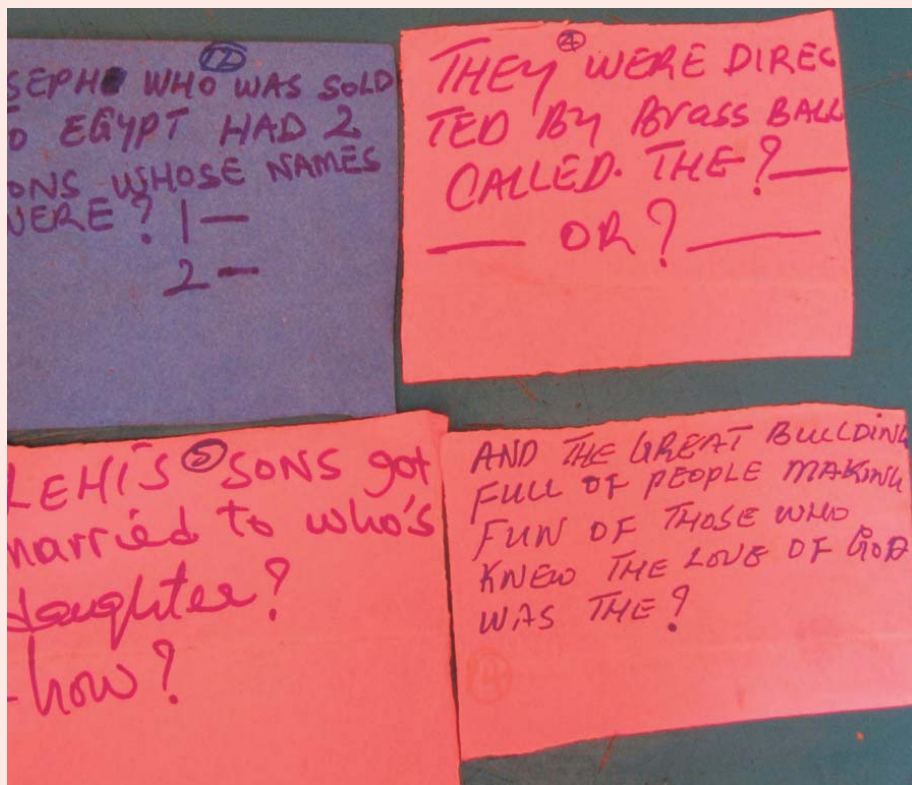 12
SEPH WHO WAS SOLD
O EGYPT HAD 2
ONS WHOSE NAMES
WERE? 1 —
2 —
4
THEY WERE DIREC
TED By Brass BALL
CALLED. THE? —
— OR? —
5
LEHI'S SONS got
married to who's
daughter?
- how?
AND THE GREAT BUILDING
FULL OF PEOPLE MAKING
FUN OF THOSE WHO
KNEW THE LOVE OF GOD
WAS THE?
14